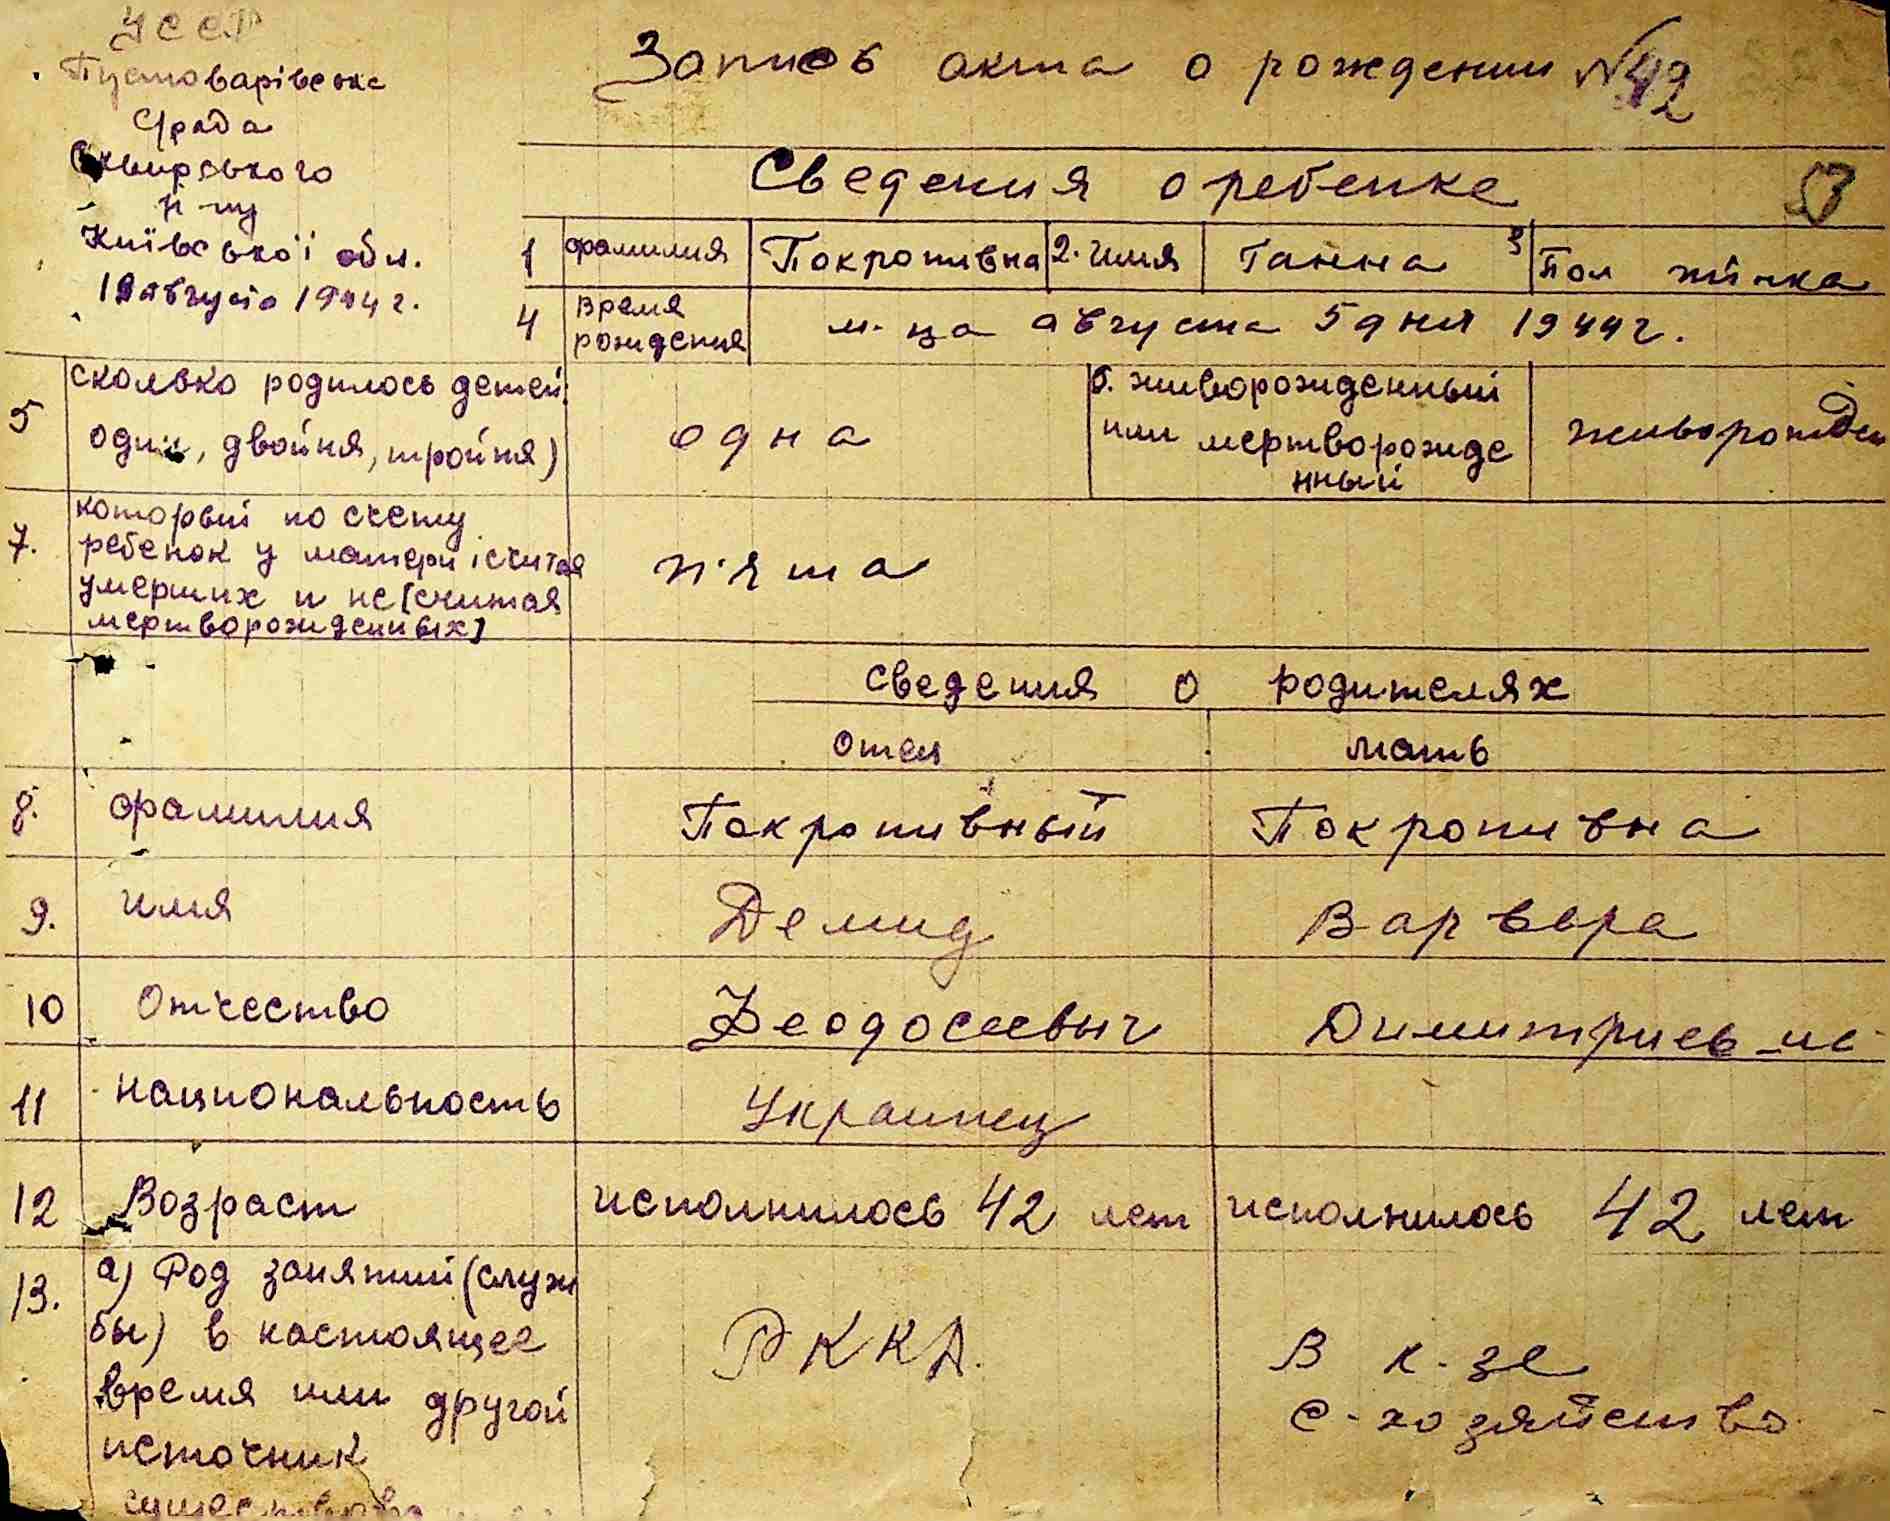 УССР
Пустоварівська
С/рада
Сквирського
р-ну
Київської обл.
19 августа 1944 г.
Запись акта о рождении №42
Сведения о ребенке
1 фамилия Покропивна 2. имя Ганна 3 Пол жінка
4 время рождения м-ца августа 5 дня 1944 г.
5 сколько родилось детей:
один, двойня, тройня)
одна
6. живорожденный
или мертворожде
нный
живорожден
7. который по счету
ребенок у матери (считая
умерших и не [считая
мертворожденных]
п'ята
сведения о родителях
отец мать
8. фамилия Покропивный Покропивна
9. имя Демид Варвара
10 Отчество Феодосеевыч Димитриев-на
11 национальность Украинец
12 Возраст исполнилось 42 лет исполнилось 42 лет
13. а) Род занятий (служ
бы) в настоящее
время или другой
источник
РККА.
В к-зе
с-хозяйство